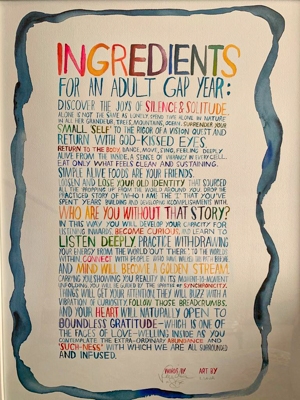 INGREDIENTS
FOR AN ADULT GAP YEAR:
DISCOVER THE JOYS OF SILENCE & SOLITUDE
ALONE IS NOT THE SAME AS LONELY. SPEND TIME ALONE IN NATURE
IN ALL HER GRANDEUR, TREES, MOUNTAINS, OCEAN. SURRENDER YOUR
SMALL SELF TO THE RIGOR OF A VISION QUEST AND
RETURN WITH GOD-KISSED EYES.
RETURN TO THE BODY. DANCE, MOVE, SING, FEELING DEEPLY
ALIVE FROM THE INSIDE, A SENSE OF VIBRANCY IN EVERY CELL.
EAT ONLY WHAT FEELS CLEAN AND SUSTAINING.
SIMPLE ALIVE FOODS ARE YOUR FRIENDS.
LOOSEN AND LOSE YOUR OLD IDENTITY THAT SOURCED
ALL THE PROMPTING UP FROM THE WORLD AROUND YOU. DROP THE
PRACTICED STORY OF "YOU AND THE I" THAT YOU'VE
SPENT YEARS BUILDING AND DEVELOPING ACCOMPLISHMENTS WITH.
WHO ARE YOU WITHOUT THAT STORY?
IN THIS WAY YOU WILL DEVELOP YOUR CAPACITY FOR
LISTENING INWARDS. BECOME CURIOUS, AND LEARN TO
LISTEN DEEPLY. PRACTICE WITHDRAWING
YOUR ENERGY FROM THE WORLD "OUT THERE" TO THE WORLD
WITHIN. CONNECT WITH PEOPLE WHO HAVE WALKED THIS PATH BEFORE
AND MIND WILL BECOME A GOLDEN STREAM
CARRYING YOU, SHOWING YOU REALITY IN ITS MOMENT-TO-MOMENT
UNFOLDING. YOU WILL BE GUIDED BY THE SPIRIT OF SYNCHRONICITY.
THINGS WILL GET YOUR ATTENTION, THEY WILL BUZZ WITH A
VIBRATION OF CURIOSITY. FOLLOW THOSE BREADCRUMBS,
AND YOUR HEART WILL NATURALLY OPEN TO
BOUNDLESS GRATITUDE—WHICH IS ONE OF
THE FACES OF LOVE—WELLING INSIDE AS YOU
CONTEMPLATE THE EXTRA-ORDINARY ABUNDANCE AND
"SUCH-NESS" WITH WHICH WE ARE ALL SURROUNDED
AND INFUSED.
WORDS BY
ART BY